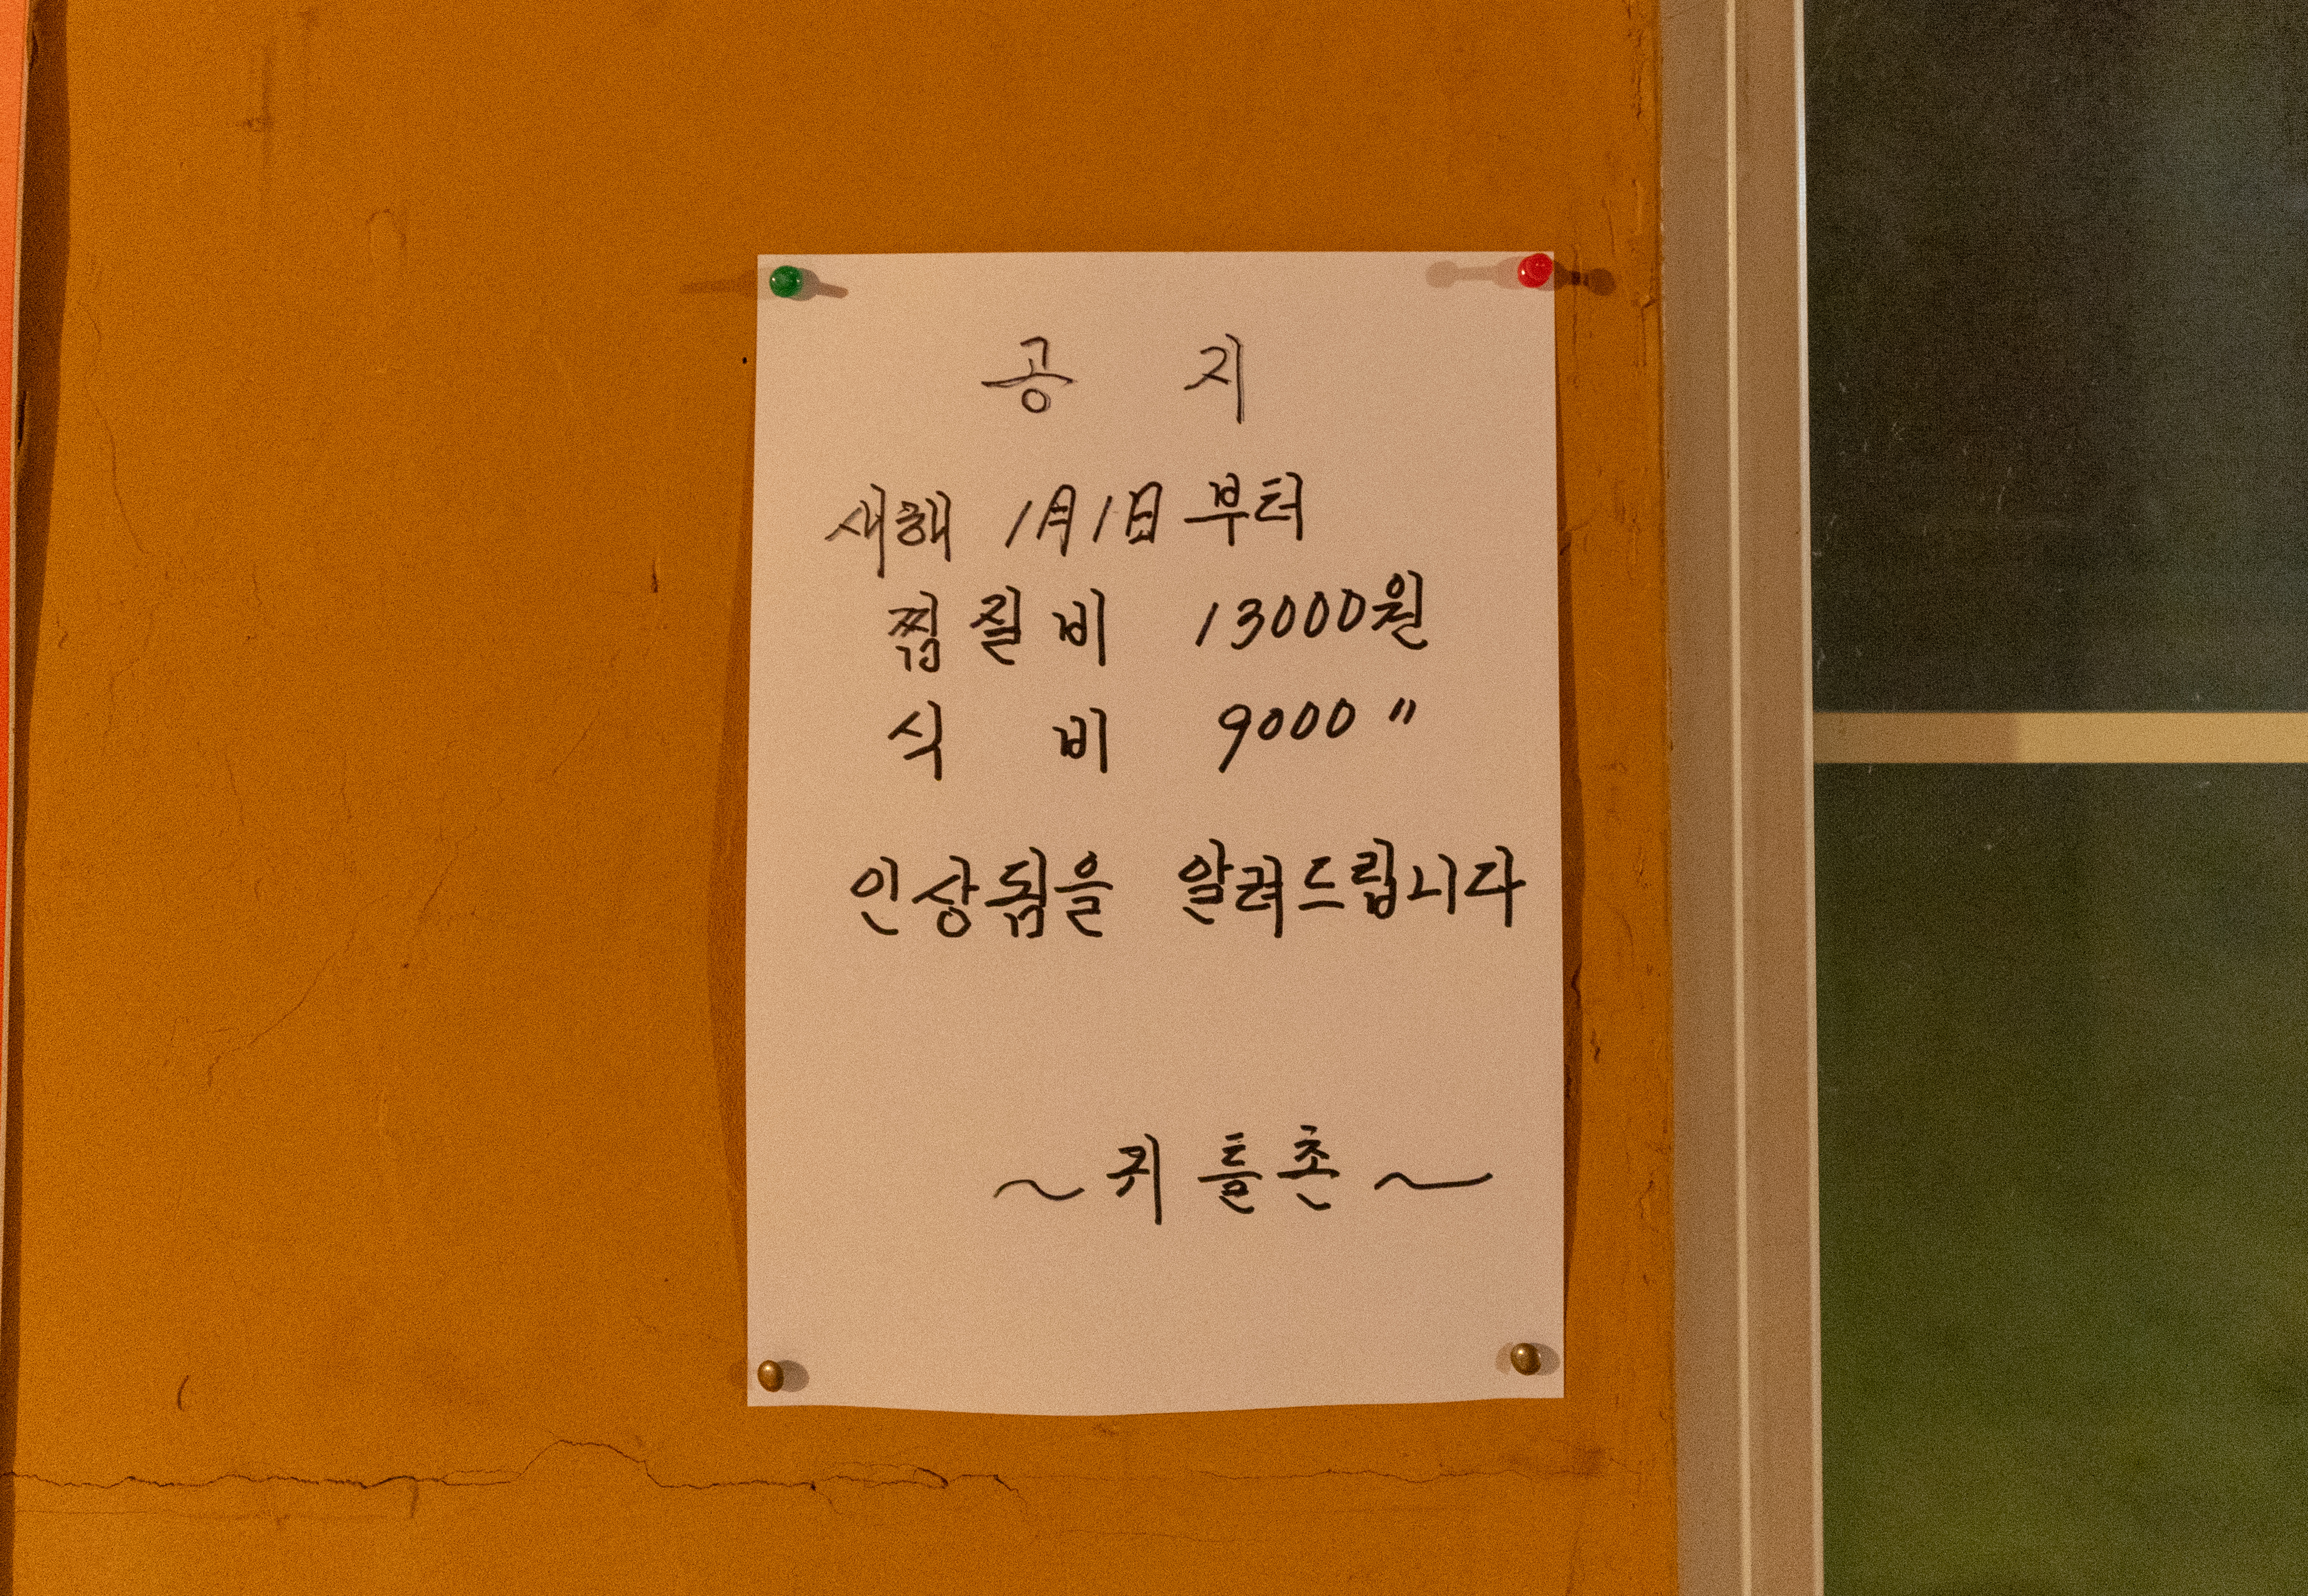 공 지
새해 1月1日 부터
찜질비 13000원
식 비 9000 〃
인상됨을 알려드립니다
~ 귀틀촌 ~